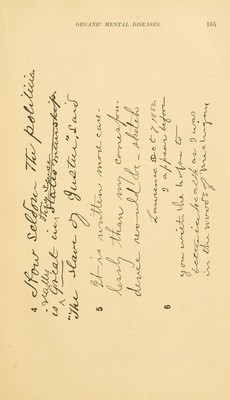 ORGANIC MENTAL DISEASES. 185
4 How Seldom The politicia
really The
is Great in statesmanship.
"The slave of Justice", said
5 It is written more care-
lessly than my correspon-
dence would be – sketch
6 Lawrence Oct 7, 1882
I appear before
you with the hope to
in health as I was
in the woods of Michigan